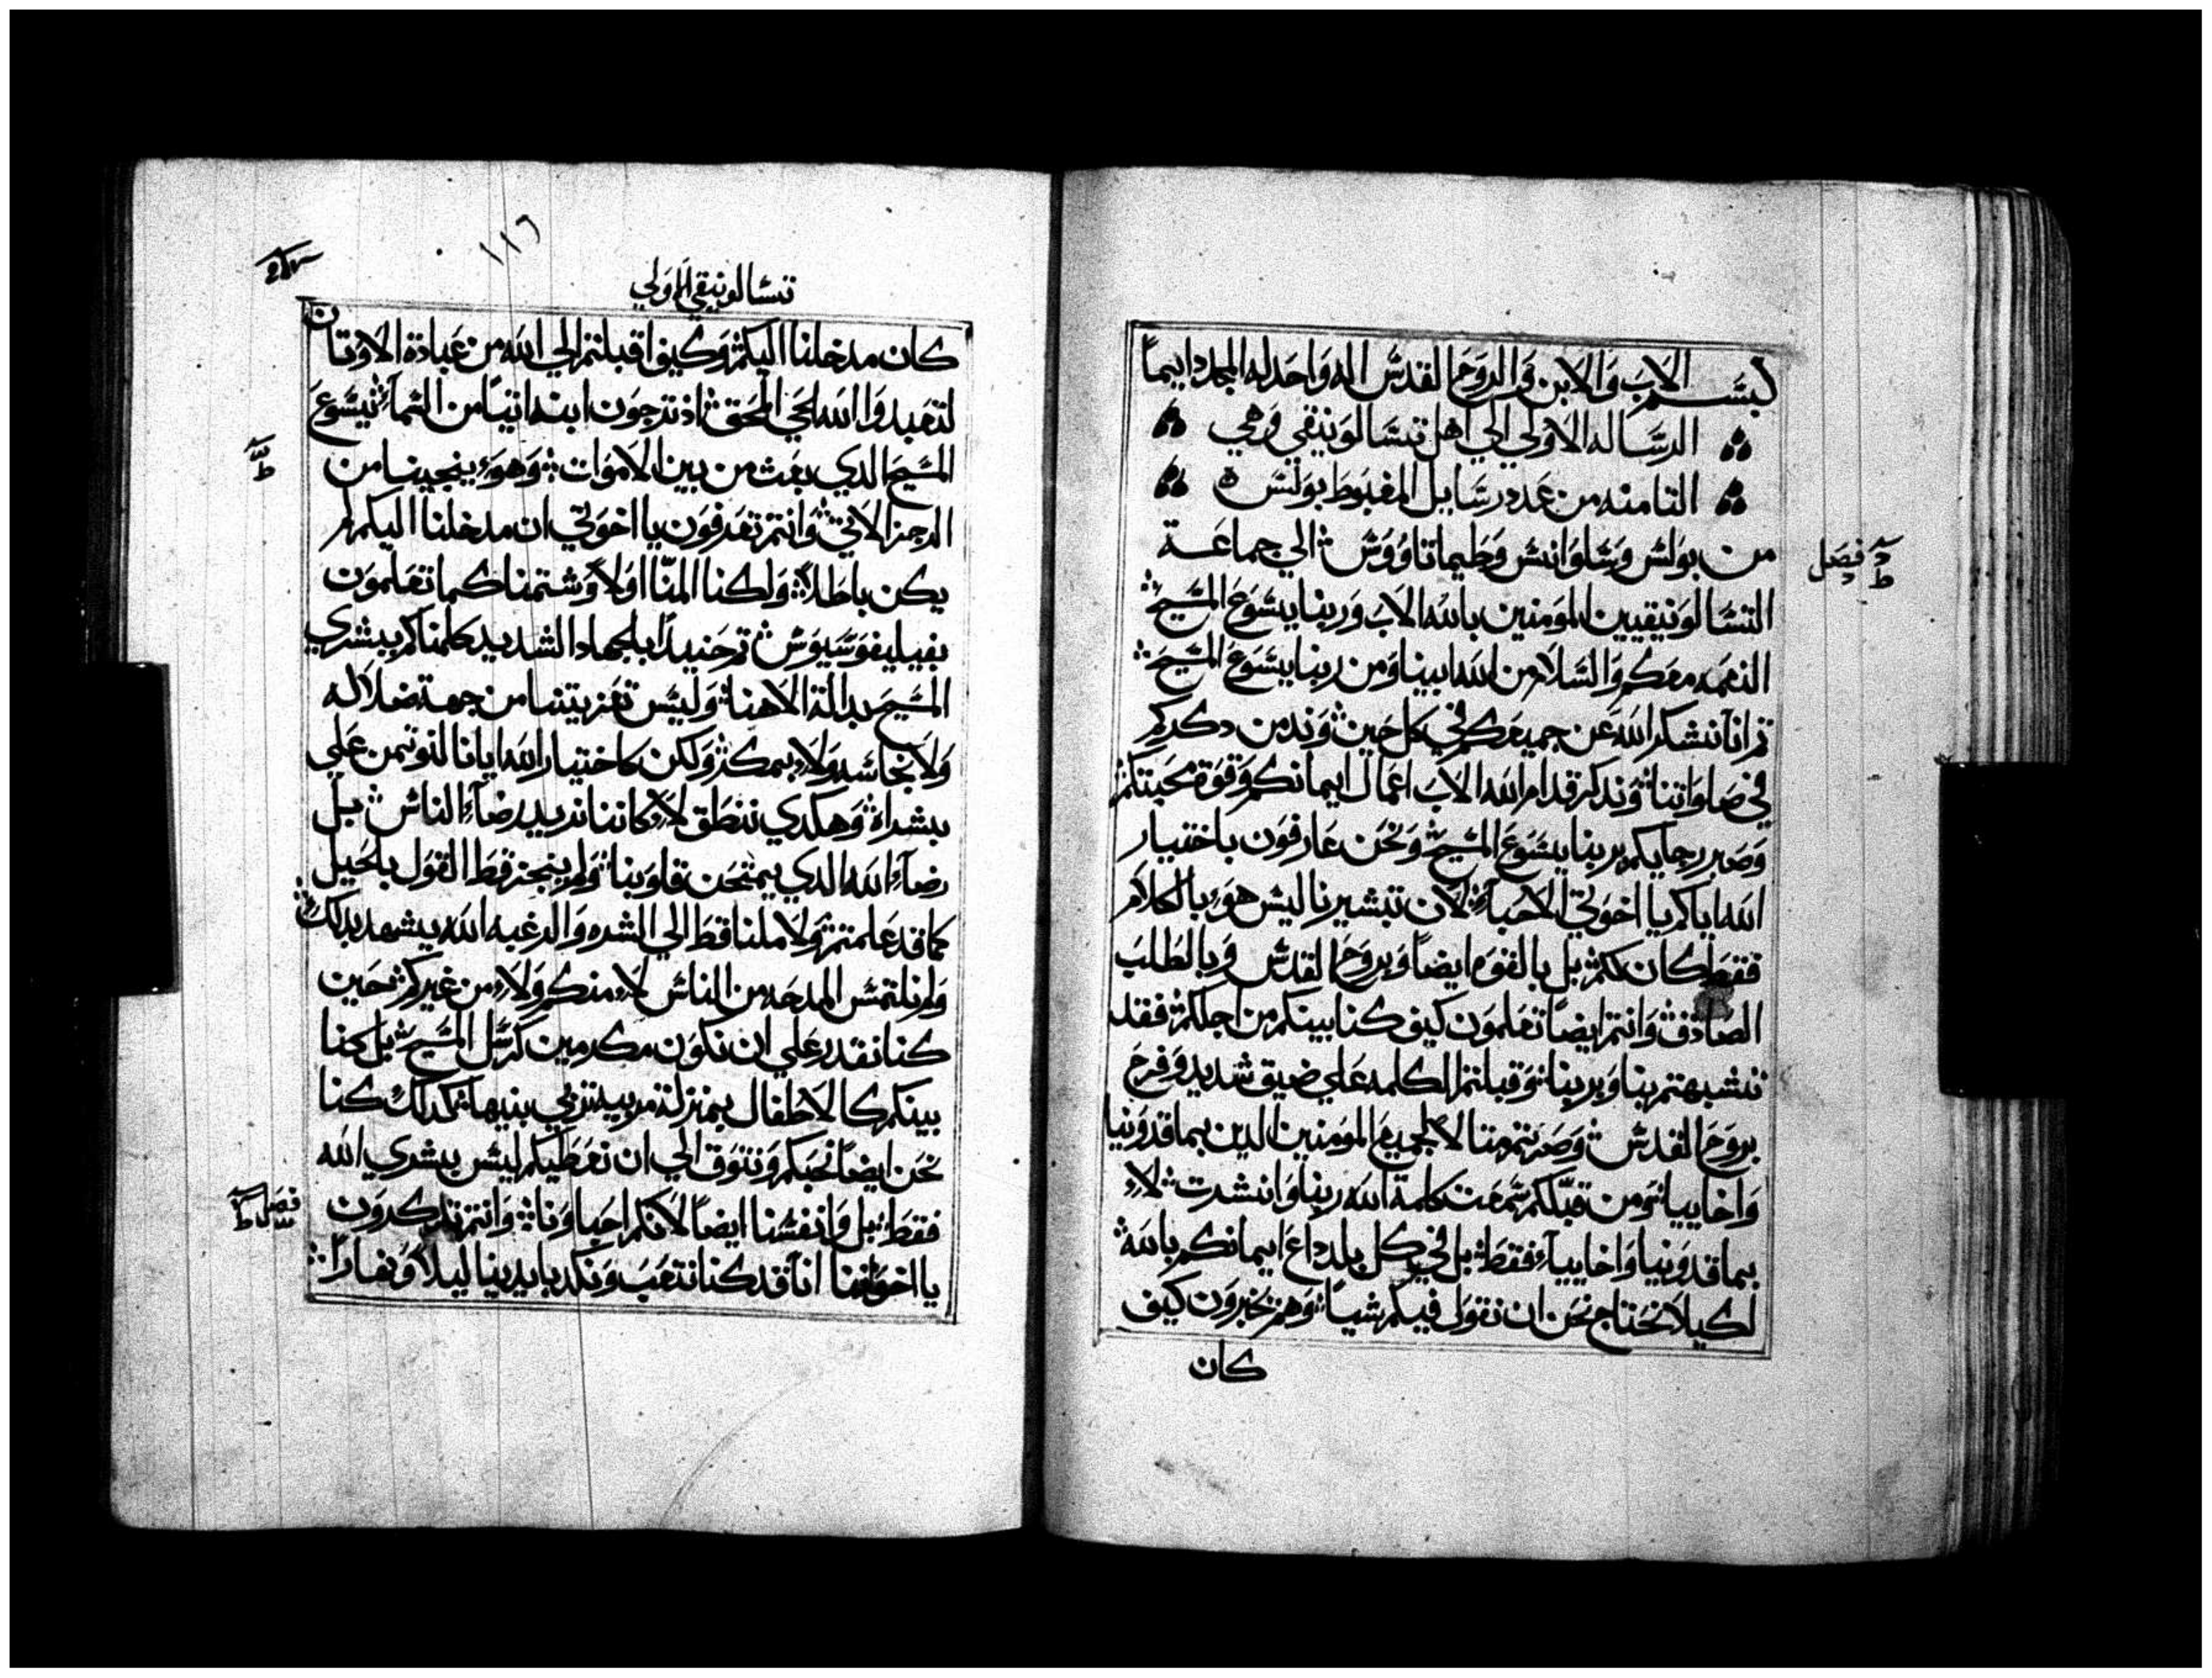 بسم الاب والابن والروح القدس اله واحد له المجد دايماً
الرساله الاولي الي اهل تسالونيقي وهي
الثامنه من عدد رسايل المغبوط بولس ه
من بولس وسلوانس وطيماتاووس الي جماعة
فصل
التسالونيقيين المومنين بالله الاب وربنا يسوع المسيح
النعمه معكم والسلام من الله ابينا ومن ربنا يسوع المسيح
ثم انا نشكر الله عن جميعكم في كل حين وندمن دكركم
في صلواتنا وندكر قدام الله الاب اعمال ايمانكم وقوة محبتكم
وصبر رجايكم بربنا يسوع المسيح ونحن عارفون باختيار
الله اياكم يا اخوتي الاحباء لان تبشيرنا ليس هو بالكلام
فقط كان لكم بل بالقوه ايضاً وبروح القدس وبالطلب
الصادق وانتم ايضاً تعلمون كيف كنا بينكم من اجلكم فقد
تشبهتم بنا وبربنا وقبلتم الكلمه علي ضيق شديد وفرح
بروح القدس وصرتم مثالاً لجميع المومنين الدين بماقدونيا
واخاييا ومن قبلكم سمعت كلمة الله ربنا وانتشرت لا
بماقدونيا واخاييا فقط بل في كل بلد داع ايمانكم بالله
لكيلا نحتاج نحن ان نقول فيكم شياً وهم يخبرون كيف
كان
١١٦
تسالونيقي الاولي
كان مدخلنا اليكم وكيف اقبلتم الي الله من عبادة الاوتان
لتعبدوا الله الحي المحق اد ترجون ابنه اتياً من السماء يسوع
المسيح الدي بعث من بين الاموات وهو ينجينا من
الرجز الاتي وانتم تعرفون يا اخوتي ان مدخلنا اليكم لم
يكن باطلاً ولكنا المنّا اولاً وشتمنا كما تعلمون
بفيليفوسيوس تم حنيداً بالجهاد الشديد كلمناكم ببشري
المسيح بدالة الاهنا وليس تعزيتنا من جهة ضلاله
ولا نجاسه ولا بمكر ولكن كاختيار الله ايانا لنوتمن علي
بشراه وهكدي ننطق لا كاننا نريد رضاء الناس بل
رضاء الله الدي يمتحن قلوبنا ولم ينجز قط القول بالحيل
كما قد علمتم ولا ملنا قط الي الشره والرغبه الله يشهد بدلك
ولم نلتمس المدحه من الناس لا منكم ولا من غيركم حين
كنا نقدر علي ان نكون مكرمين كرسل المسيح بل كنا
بينكم كالاطفال بمنزلة مربيه تربي بنيها كدلك كنا
نحن ايضاً نحبكم ونتوق الي ان نعطيكم ليس بشري الله
فقط بل وانفسنا ايضاً لانكم احباونا وانتم تدكرون
فصل
يا اخوتنا انا قد كنا نتعب ونكد بايدينا ليلاً ونهاراً